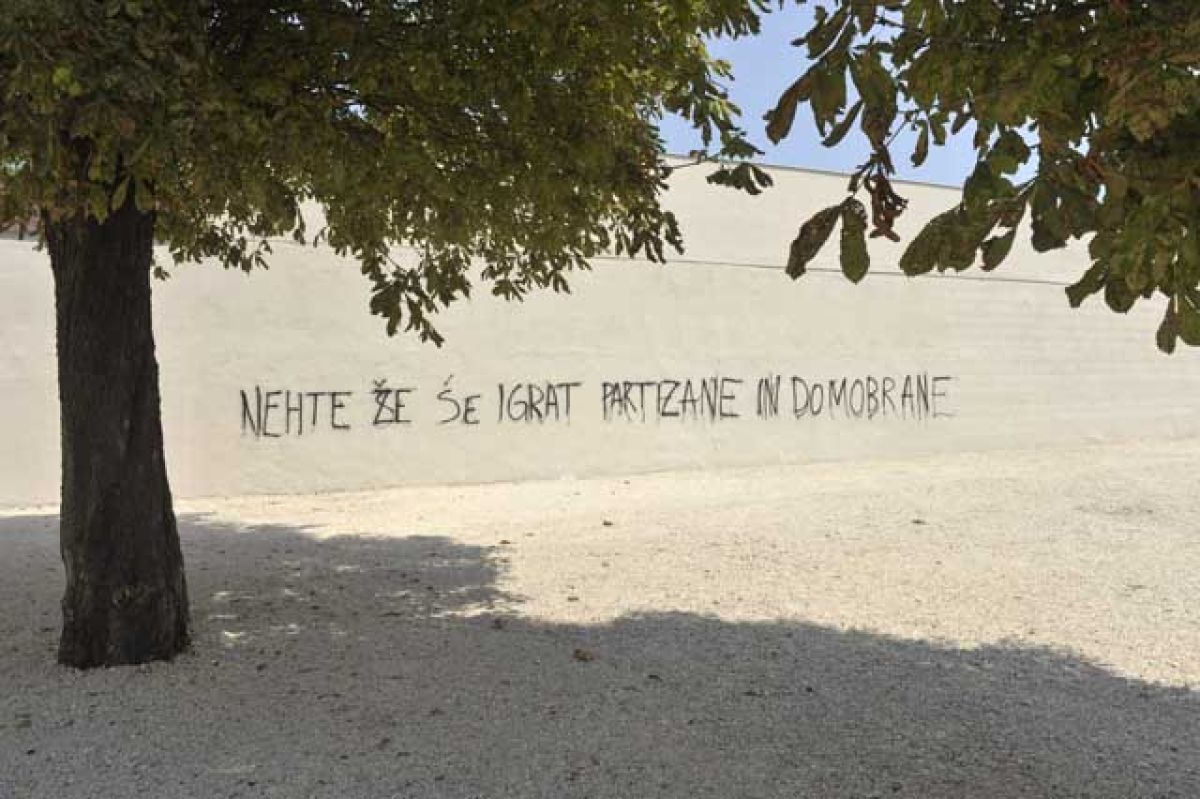 NEHTE ŽE ŠE IGRAT PARTIZANE IN DOMOBRANE